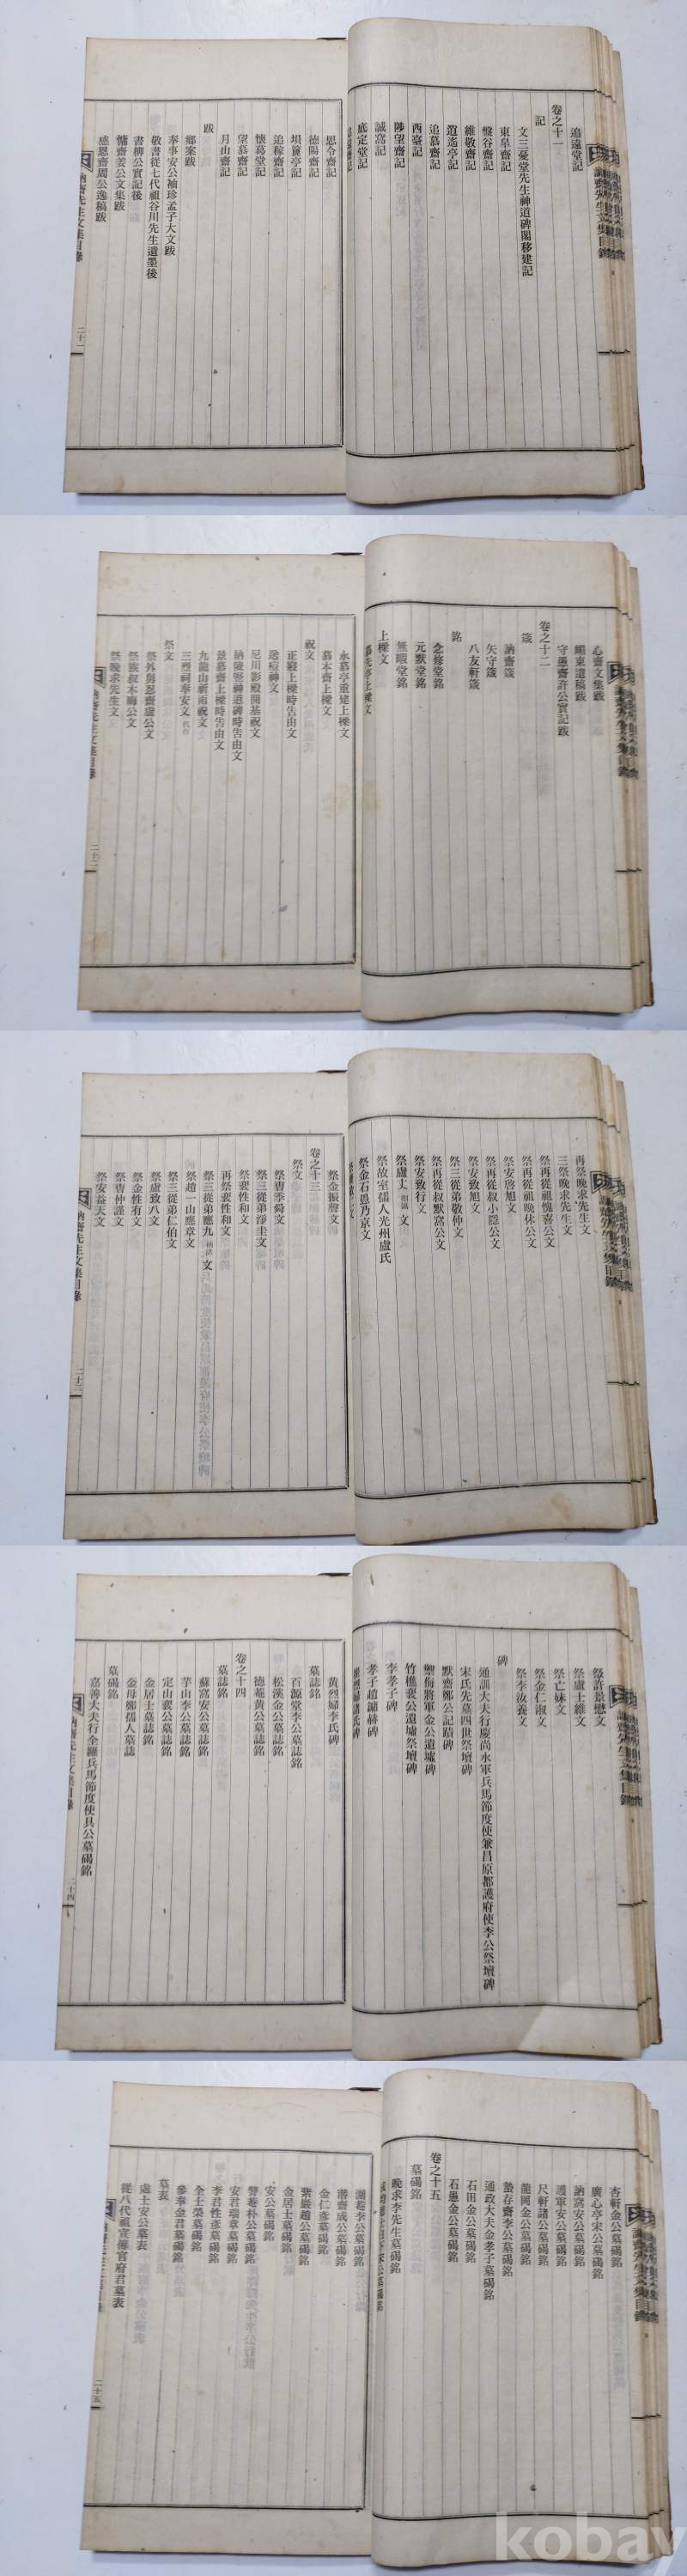 追遠堂記
卷之十一
記
文三憂堂先生神道碑閣移建記
東皐齋記
盤谷齋記
維敬齋記
逍遙亭記
追慕齋記
西臺記
陟望齋記
誠窩記
底定堂記
思令齋記
德陽齋記
塤篪亭記
追稼齋記
懷葛堂記
望慕齋記
月山齋記
跋
鄉案跋
奉事安公袖珍孟子大文跋
敬書從七代祖谷川先生遺墨後
書柳公實記後
慵齋姜公文集跋
感恩齋周公逸稿跋
訥齋先生文集目錄
二十一
心齋文集跋
守愚齋許公實記跋
卷之十二
箴
訥齋箴
矢守箴
八友軒箴
銘
念修堂銘
元默堂銘
無暇堂銘
上樑文
永慕亭重建上樑文
慕本齋上樑文
祝文
正寢上樑時告由文
送痘神文
尼川影殿開基祝文
訥陵竪神道碑時告由文
景慕齋上樑時告由文
九龍山祈雨祝文
三烈祠奉安文
祭文
祭外舅忍齋盧公文
祭族叔木晦公文
祭晚求先生文
訥齋先生文集目錄
二十二
再祭晚求先生文
三祭晚求先生文
祭再從祖愧喜公文
祭再從祖晚休公文
祭安啓旭文
祭再從叔小隱公文
祭安致旭文
祭三從弟敬仲文
祭再從叔默窩公文
祭安致行文
祭盧丈文
祭故室孺人光州盧氏
祭金石愚乃京文
祭金振聲文
卷之十三
祭文
祭曺季舜文
祭三從弟淨圭文
祭裵性和文
再祭裵性和文
祭三從弟應九文
祭趙一山應章文
祭三從弟仁伯文
祭盧致八文
祭金性有文
祭曺仲謹文
祭安益天文
訥齋先生文集目錄
二十三
祭許景懋文
祭盧士維文
祭亡妹文
祭金仁淑文
祭李汝養文
碑
通訓大夫行慶尚水軍兵馬節度使兼昌原都護府使李公祭壇碑
宋氏先墓四世祭壇碑
默齋鄭公記蹟碑
禦侮將軍金公遺墟碑
竹樵裵公遺墟祭壇碑
李孝子碑
孝子趙誧赫碑
黃烈婦李氏碑
墓誌銘
百源堂李公墓誌銘
松溪金公墓誌銘
德菴黃公墓誌銘
卷之十四
墓誌銘
蘇窩安公墓誌銘
芋山李公墓誌銘
定山裵公墓誌銘
金居士墓誌銘
金母鄭孺人墓誌
墓碣銘
嘉善大夫行全羅兵馬節度使具公墓碣銘
訥齋先生文集目錄
二十四
杏軒金公墓碣銘
廣心亭宋公墓碣銘
訥窩安公墓碣銘
護軍安公墓碣銘
尺軒諸公墓碣銘
龍岡金公墓碣銘
螯存齋李公墓碣銘
通政大夫金孝子墓碣銘
石田金公墓碣銘
石愚金公墓碣銘
卷之十五
墓碣銘
晚求李先生墓碣銘
湖菴李公墓碣銘
濟齋成公墓碣銘
金仁彥墓碣銘
紫巖趙公墓碣銘
金居士墓碣銘
安公墓碣銘
警菴朴公墓碣銘
安君瑞章墓碣銘
李君性彥墓碣銘
全士榮墓碣銘
參奉金君墓碣銘
墓表
處士安公墓表
從八代祖宣傳官府君墓表
二十五
kobay